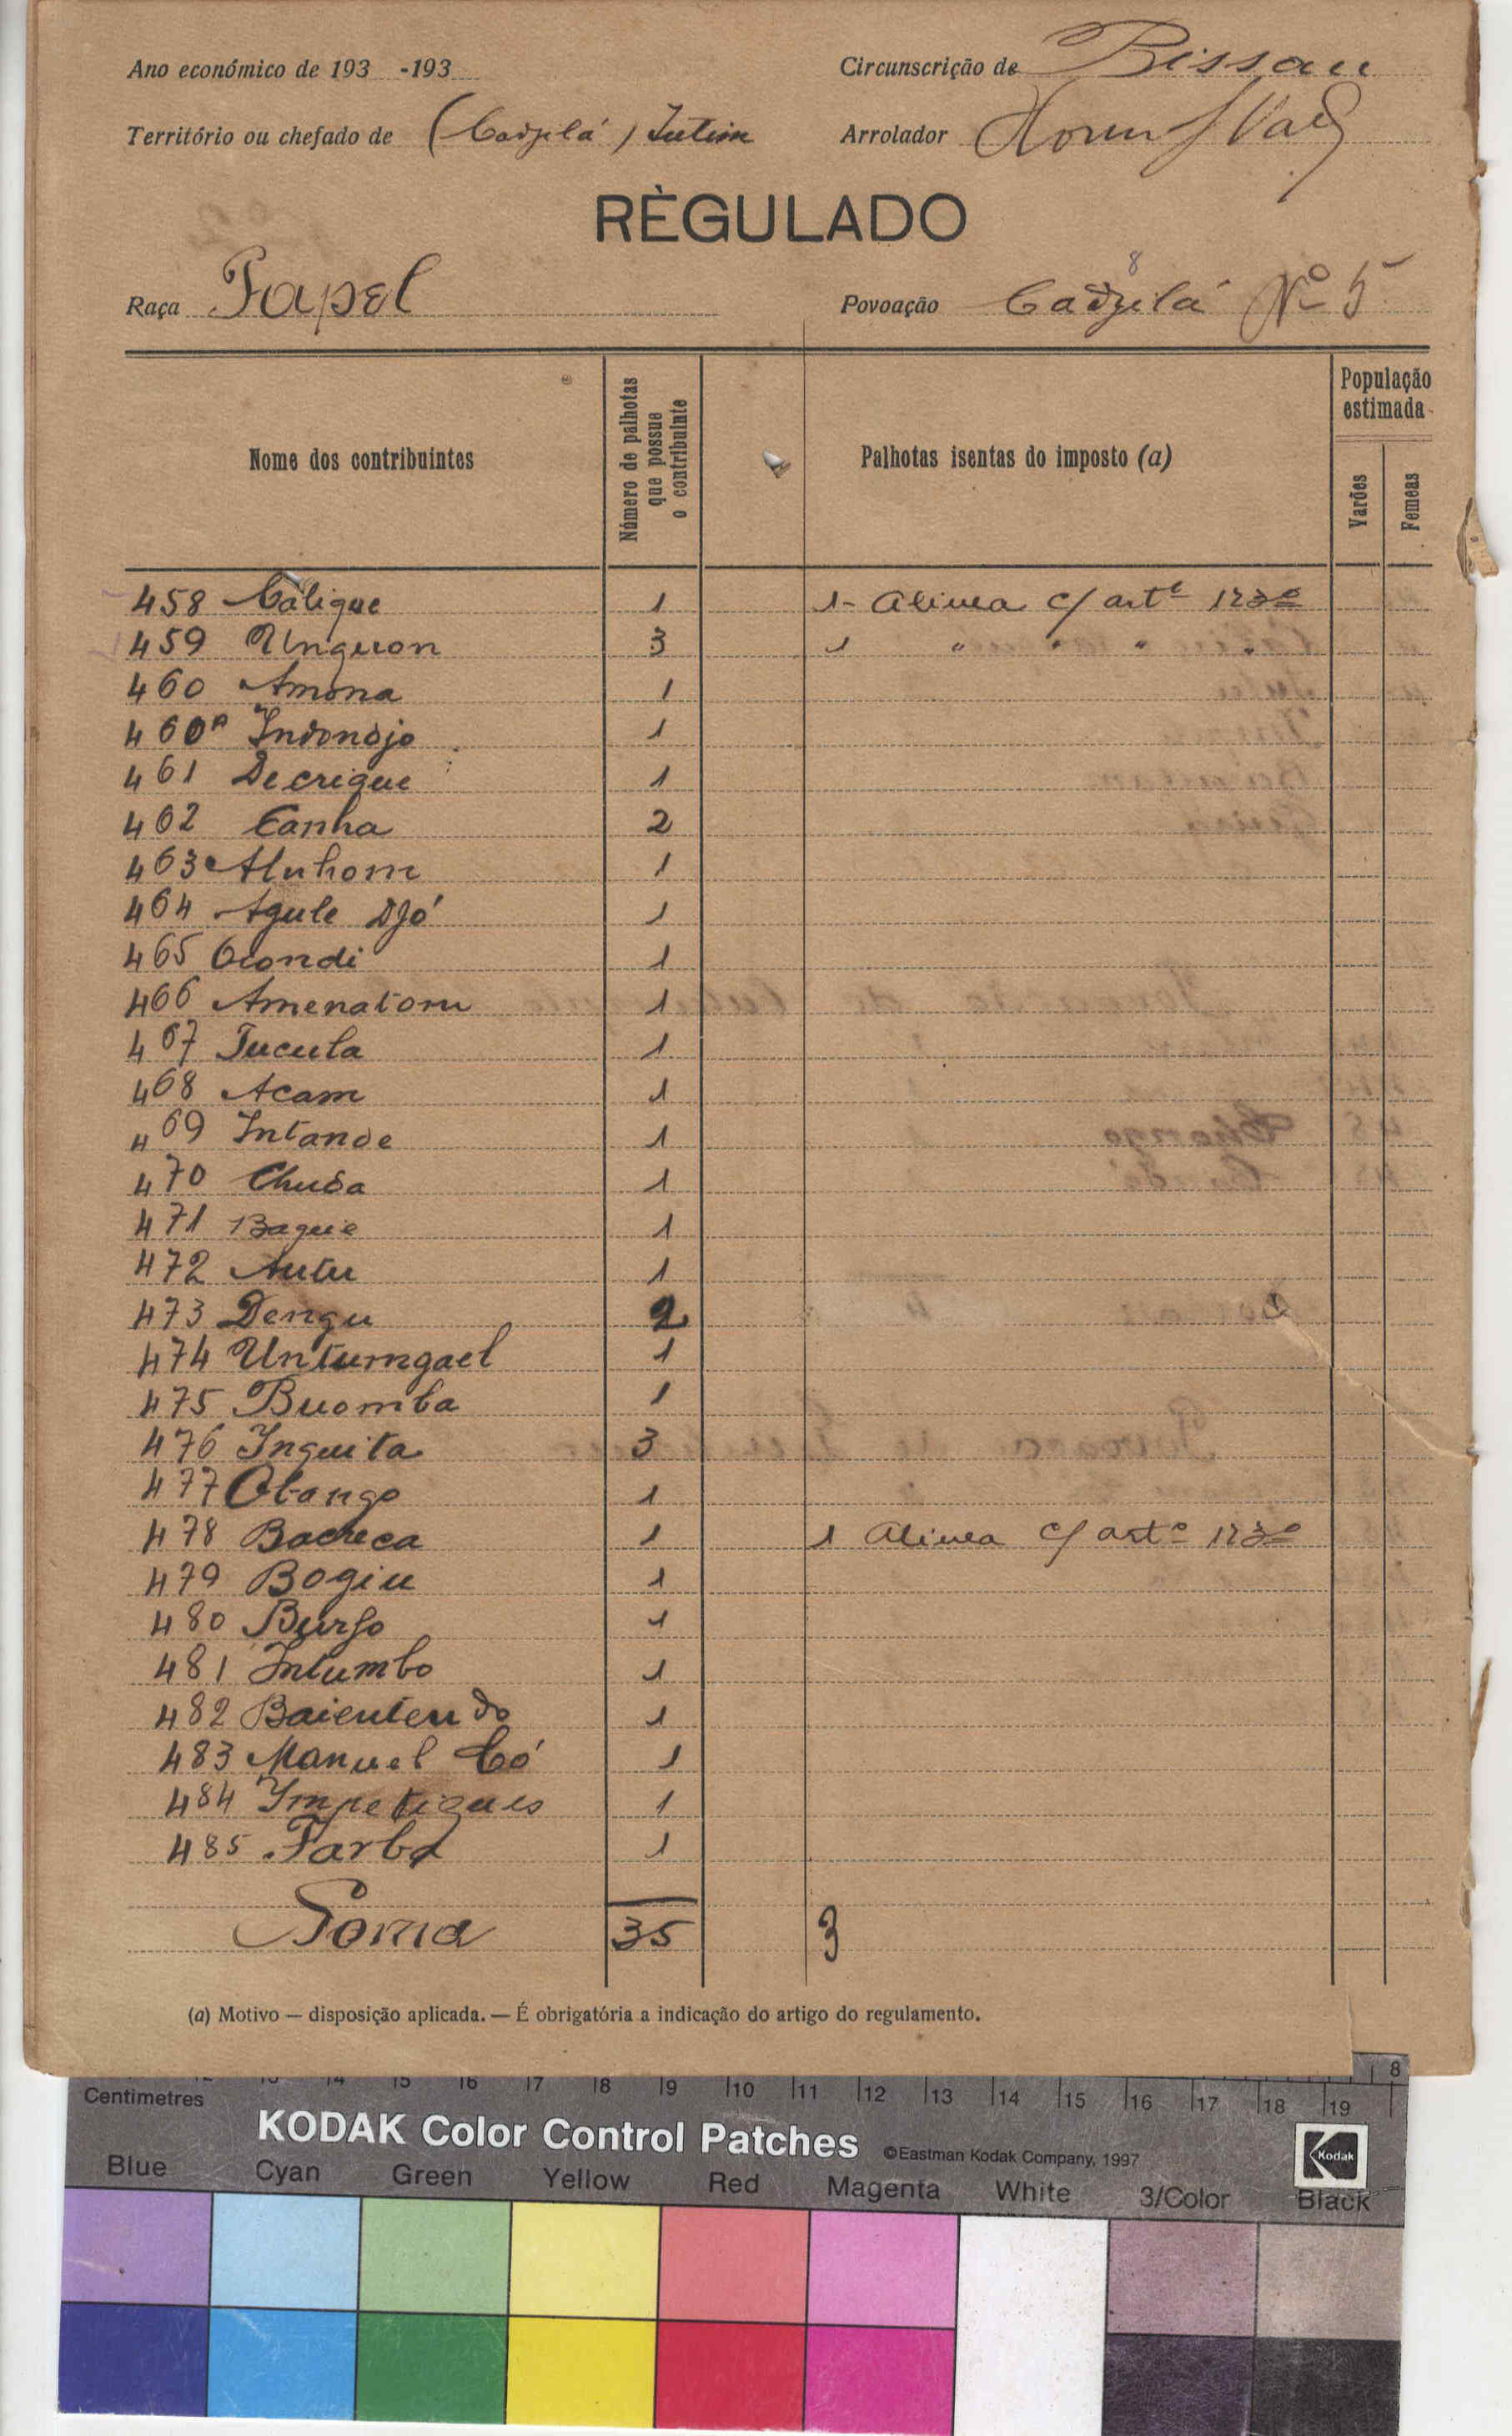 Ano económico de 193 -193
Circunscrição de Bissau
Território ou chefado de (Cadjilá) Intim
Arrolador
RÈGULADO
Raça Papel
8
Povoação Cadjilá Nº 5
Nome dos contribuintes
Número de palhotas que possue o contribuinte
Palhotas isentas do imposto (a)
População estimada
Varões
Femeas
458 Calique 1 1- Alinea c/ artº 123º
459 Unguon 3 1 " " " "
460 Amona 1
460A Indondjo 1
461 Decrigue 1
462 Canha 2
463 Aluhom 1
464 Agule Djó 1
465 Ocondi 1
466 Amenatom 1
467 Tucula 1
468 Acam 1
469 Intande 1
470 Chuda 1
471 Bague 1
472 Autu 1
473 Dengu 2
474 Untumgael 1
475 Buomba 1
476 Inquita 3
477 Obango 1
478 Bacheca 1 1 Alinea c/ artº 123º
479 Bogiu 1
480 Burfo 1
481 Intumbo 1
482 Baientendo 1
483 Manuel Có 1
484 Impetigues 1
485 Farba 1
Soma 35 3
(a) Motivo — disposição aplicada. — É obrigatória a indicação do artigo do regulamento.
8
Centimetres 12 13 14 15 16 17 18 19 10 11 12 13 14 15 16 17 18 19
KODAK Color Control Patches ©Eastman Kodak Company, 1997 Kodak
Blue Cyan Green Yellow Red Magenta White 3/Color Black